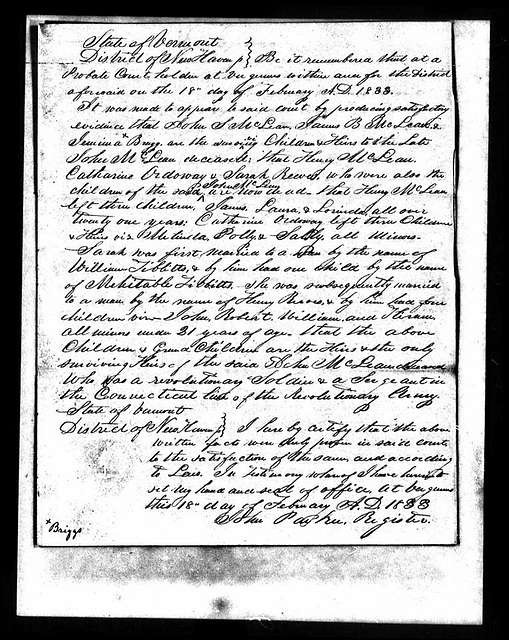 State of Vermont
District of New Haven } Be it remembered that at a
Probate Court holden at Vergennes within and for the District
aforesaid on the 18th day of February A.D. 1833.
It was made to appear to said court by producing satisfactory
evidence that John S. McLean, James B McLean &
Jemima × Brigg. are the surviving Children & Heirs to the Late
John McLean deceased; that Henry McLean
Catharine Ordoway & Sarah Reeves, who were also the
children of the said John McLean are now dead. that Henry McLean
left three Children, James, Laura, & Lorinda, all over
twenty one years; Catharine Ordoway left three Children
& Heirs viz Matilda, Polly & Sally, all Minors.
Sarah was first married to a man by the name of
William Tibbitts, & by him had one child by the name
of Mehitable Tibbitts. She was subsequently married
to a man by the name of Henry Reeves, & by him had four
children viz John, Robert, William and Hiram
all minors under 21 years of age. That the above
Children & Grand Children are the Heirs & the only
surviving Heirs of the said John McLean deceased
Who was a revolutionary Soldier & a Sergeant in
the Connecticut Line of the Revolutionary Army.
State of Vermont
District of New Haven } I hereby certify that the above
written facts were duly proven in said court
to the satisfaction of the same and according
to Law. In testimony whereof I have hereunto
set my hand and seal of office, at Vergennes
this 18th day of February A.D. 1833
John Register.
× Briggs